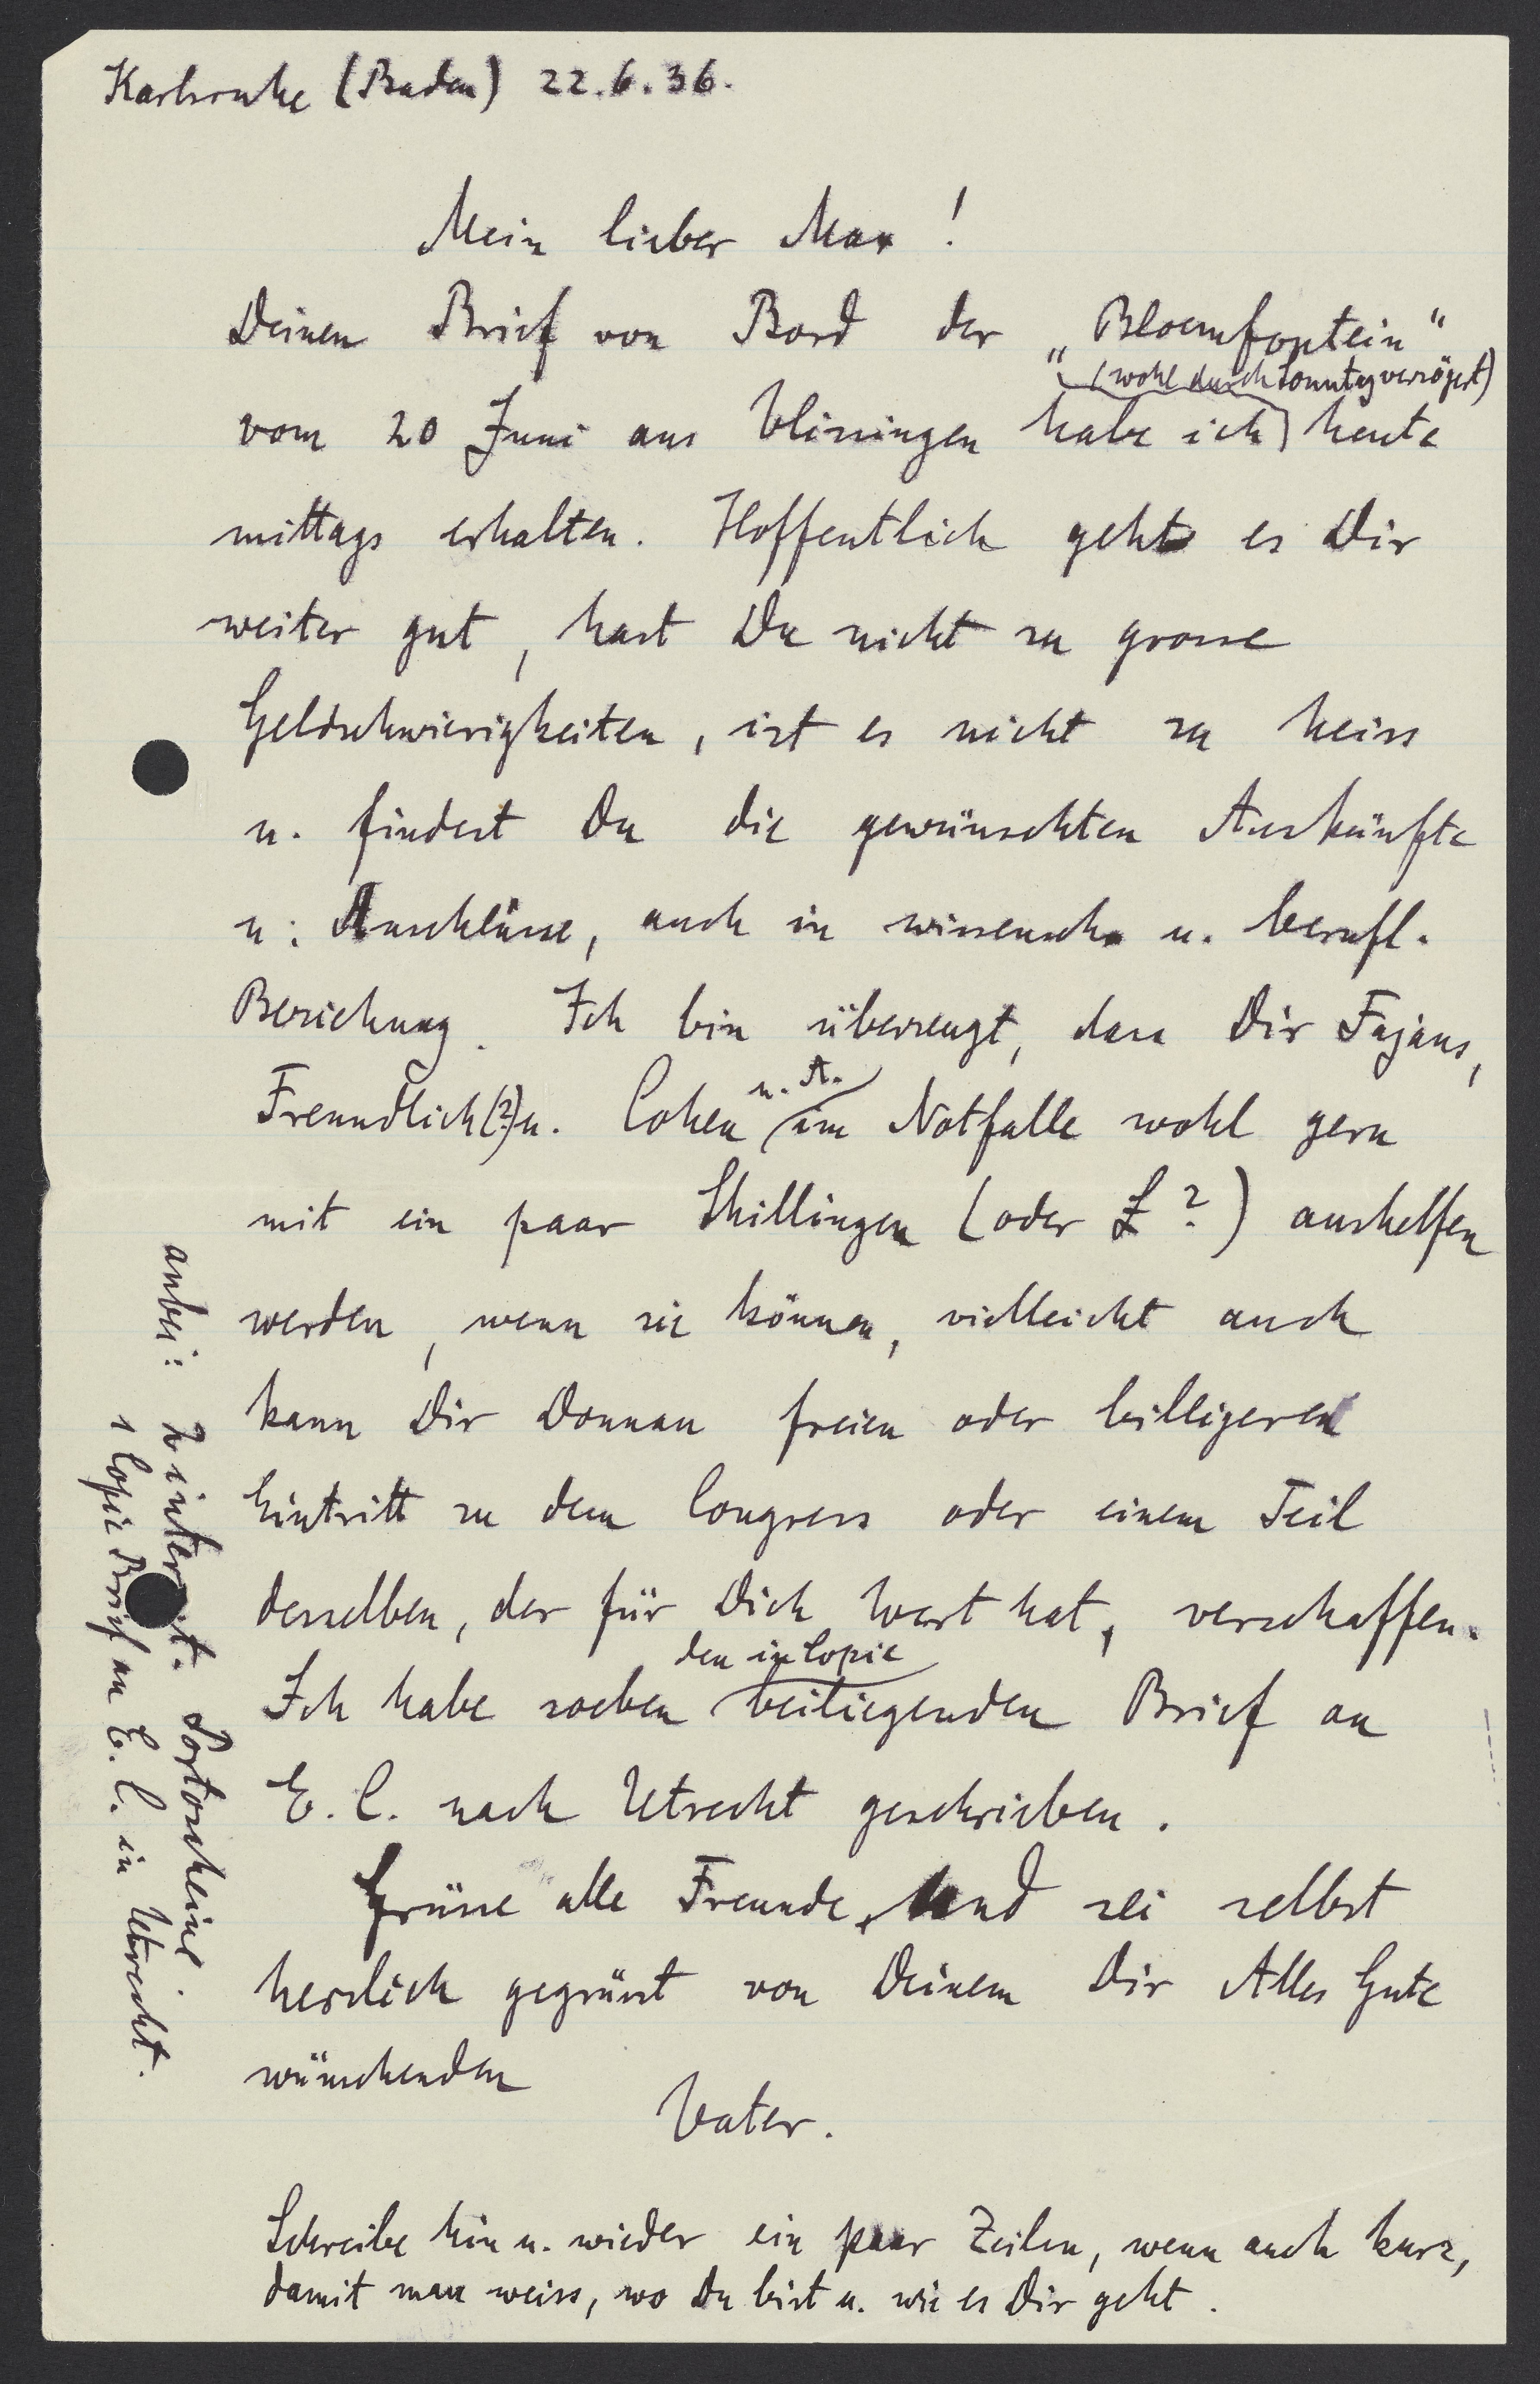 Karlsruhe (Baden) 22.6.36.
Mein lieber Max!
Deinen Brief von Bord der „Bloemfontein“
(wohl durch Sonntag verzögert)
vom 20 Juni aus Vlissingen habe ich heute
mittags erhalten. Hoffentlich geht es Dir
weiter gut, hast Du nicht zu grosse
Geldschwierigkeiten, ist es nicht zu heiss
u. findest Du die gewünschten Auskünfte
u. Anschlüsse, auch in wissensch. u. berufl.
Beziehung. Ich bin überzeugt, dass Dir Fajans,
Freundlich(?) u. Cohen u. A. im Notfalle wohl gern
mit ein paar Shillingen (oder £?) aushelfen
werden, wenn sie können, vielleicht auch
kann Dir Donnan freien oder billigeren
Eintritt zu dem Congress oder einem Teil
desselben, der für Dich Wert hat, verschaffen.
Ich habe soeben den in Copie beiliegenden Brief an
E. C. nach Utrecht geschrieben.
Grüsse alle Freunde und sei selbst
herzlich gegrüsst von Deinem Dir Alles Gute
wünschenden
Vater.
Schreibe hin u. wieder ein paar Zeilen, wenn auch kurz,
damit man weiss, wo Du bist u. wie es Dir geht.
anbei: 2 internat. Portoscheine
1 Copie Brief an E. C. in Utrecht.